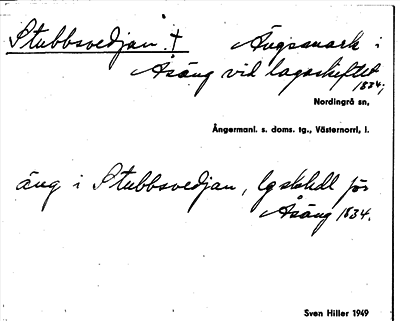 Stubbsvedjan. † Ängsmark i
Åsäng vid lagaskiftet
1834;
Nordingrå sn,
Ångermanl. s. doms. tg., Västernorrl, l.
äng i Stubbsvedjan, lgskhdl för
Åsäng 1834.
Sven Hiller 1949